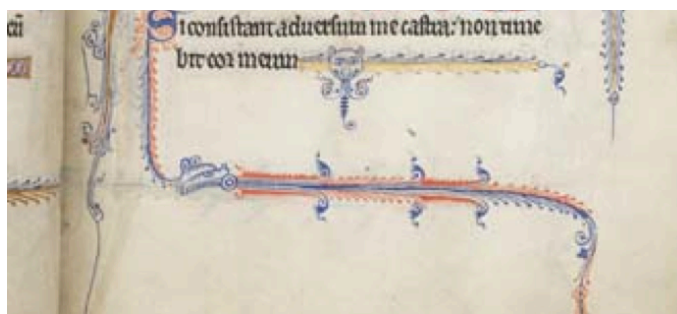 Si consistant aduersum me castra: non time
bit cor meum